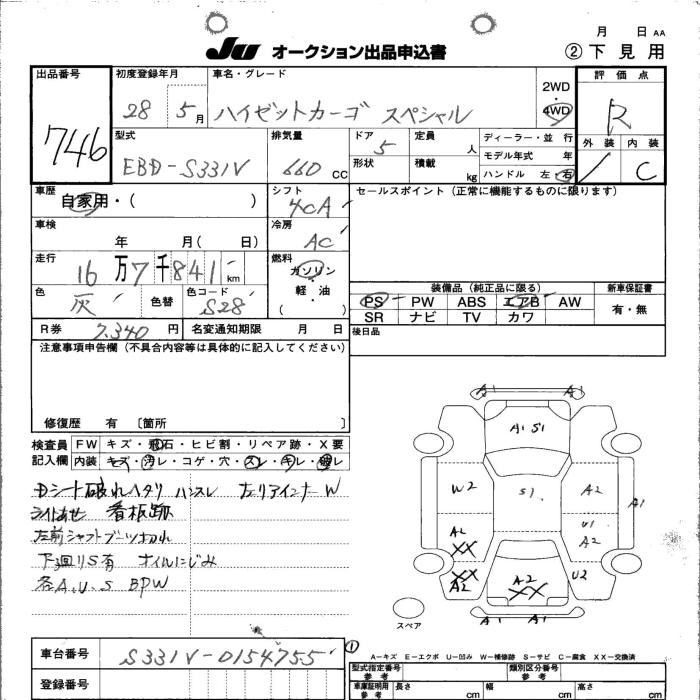 月 日 AA
JU オークション出品申込書 ② 下見用
出品番号 初度登録年月 車名・グレード 評価点
746 28 5月 ハイゼットカーゴ スペシャル 2WD 4WD R
型式 排気量 ドア 定員 ディーラー・並行 外装 内装
EBD-S331V 660 CC 5 人 モデル年式 年 / C
形状 積載 kg ハンドル 左 右
車歴 シフト セールスポイント (正常に機能するものに限ります)
自家用・( ) 4CA
車検 冷房
年 月( 日) AC
走行 燃料
16万7千841km ガソリン・軽油・( )
色 色替 色コード 装備品 (純正品に限る) 新車保証書
灰 S28 PS PW ABS エアB AW 有・無
SR ナビ TV カワ
R券 7,340 円 名変通知期限 月 日 後日品
注意事項申告欄 (不具合内容等は具体的に記入してください)
修復歴 有 〔箇所 〕
検査員 FW キズ・飛石・ヒビ割・リペア跡・X要
記入欄 内装 キズ・汚レ・コゲ・穴・スレ・キレ・破レ
Dシート破れヘタリ ハンスレ 左リアインナーW
ライトあせ 看板跡
左前シャフトブーツ切れ
下廻りS有 オイルにじみ
各A.U.S BPW
A1 A1
A1 S1
W2 S1 A2 A1
A2 XX U1 A2
XX A2 A2 XX U2
A1 A1
スペア
①
A-キズ E-エクボ U-凹み W-補修跡 S-サビ C-腐食 XX-交換済
車台番号 S331V-0154755
型式指定番号 参考 類別区分番号 参考
登録番号 車庫証明用 参考 長さ cm 幅 cm 高さ cm